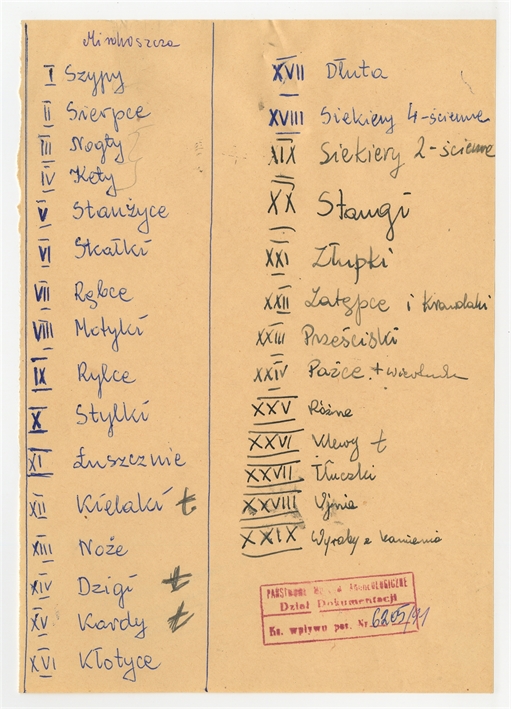 I Szypy
II Sierpce
III Nogty
IV Kęty
V Stanżyce
VI Skałki
VII Rębce
VIII Motyki
IX Rylce
X Stylki
XI Łusznie
XII Kielaki t
XIII Noże
XIV Dzigi t
XV Kardy t
XVI Kłotyce
XVII Dłuta
XVIII Siekiery 4-ścienne
XIX Siekiery 2-ścienne
XX Stangi
XXI Złupki
XXII Zatępce i
XXIII Prześciski
XXIV Pażce +
XXV Różne
XXVI t
XXVII Tłuczki
XXVIII
XXIX Wyroby z kamienia
PAŃSTWOWE MUZEUM ARCHEOLOGICZNE
Dział Dokumentacji
Ks. wpływu poz. Nr. 6205/91